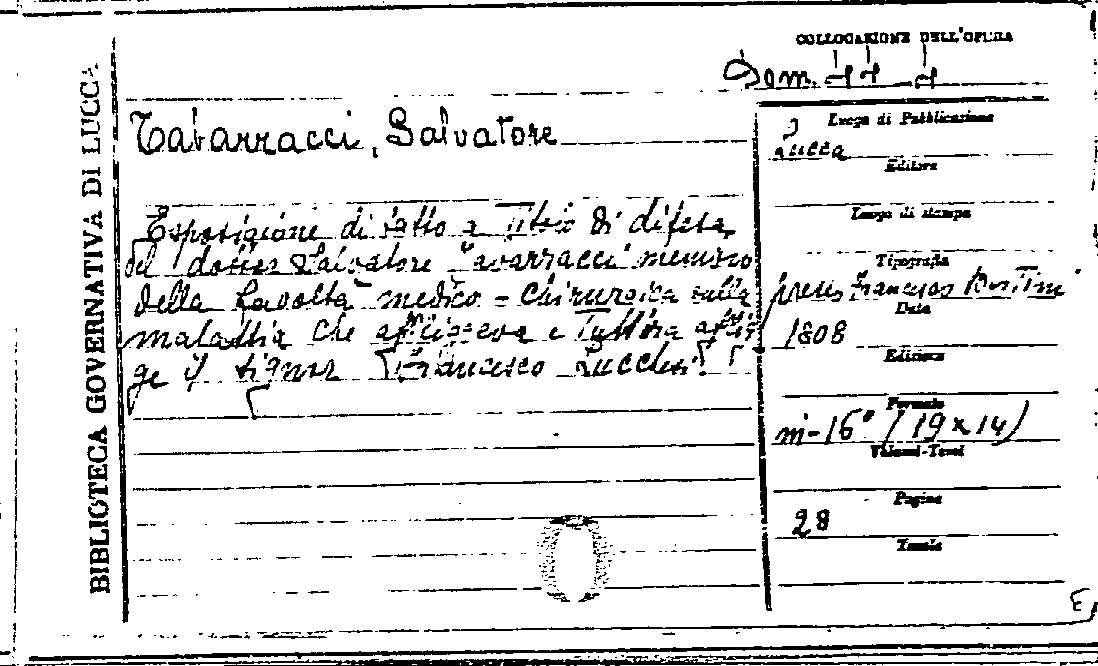 BIBLIOTECA GOVERNATIVA DI LUCCA
COLLOCAZIONE DELL'OPERA
Dom.
Tavarracci, Salvatore
Luogo di Pubblicazione
Lucca
Editore
Esposizione di fatto a titolo di difesa
del dottor Salvatore Tavarracci membro
della Facoltà medico-chirurgica sulla
malattia che affliggeva e tuttora afflig
ge il signor Francesco Lucchesi.
Luogo di stampa
Tipografia
presso Francesco Bertini
Data
1808
Edizione
Formato
in-16° (19x14)
Volumi-Tomi
Pagine
28
Tavole
E